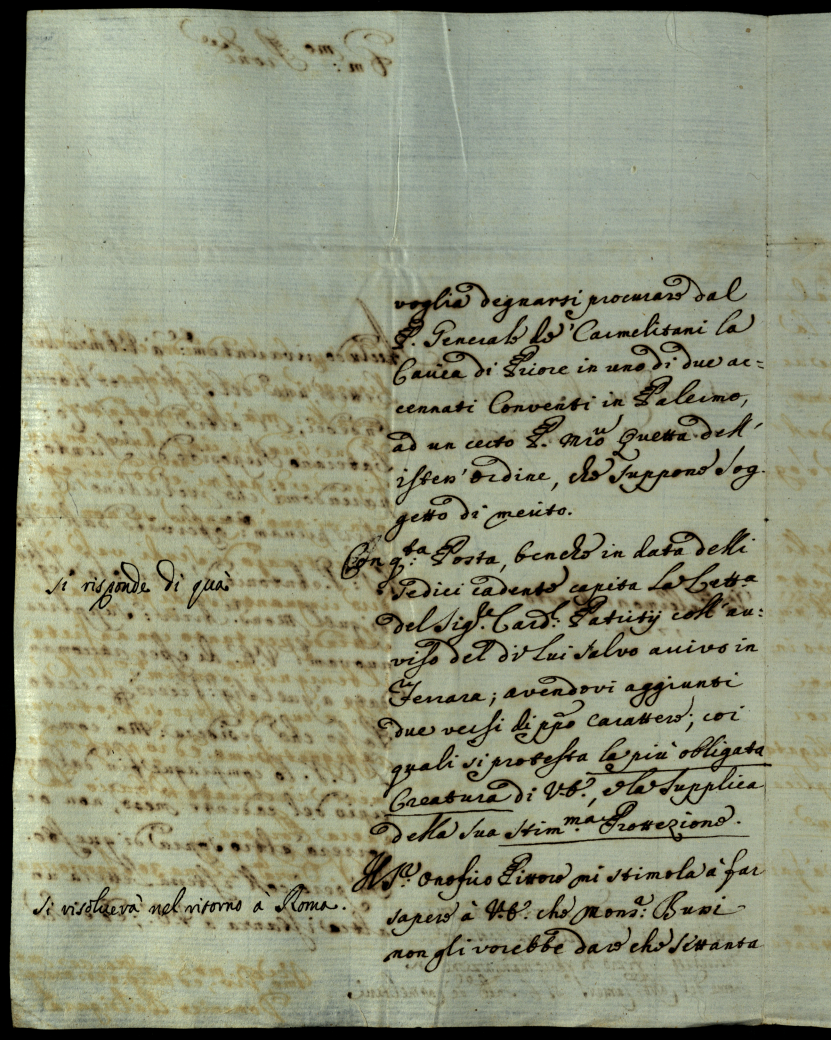 voglia degnarsi procurare dal
P. Generale de' Carmelitani la
Carica di Priore in uno di due ac=
cennati Conventi in Palermo,
ad un certo P. Mr̃o Quetta dell'
istess' Ordine, che suppone sog
getto di merito.
Con q.ta Posta, benche in data delli
sedici cadente capita la Lettã
del Sig.re Card.l Patrizij coll' au:
viso del di lui salvo arrivo in
Ferrara; avendovi aggiunti
due versi di pp̃o carattere; coi
quali si protesta la più obligata
Creatura di V.E., e la supplica
della sua stim.ma Prottezione.
si risponde di quà
Il S.r Onofrio Pittore mi stimola à far
sapere à V.E. che Mons.r
non gli vorebbe dare che settanta
si risolverà nel ritorno à Roma.